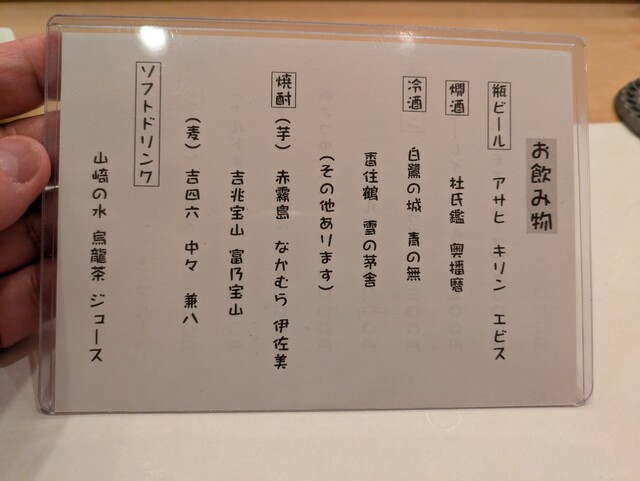 お飲み物
瓶ビール アサヒ キリン エビス
燗酒 杜氏鑑 奥播磨
冷酒 白鷺の城 青の無
香住鶴 雪の茅舎
(その他あります)
焼酎 (芋) 赤霧島 なかむら 伊佐美
吉兆宝山 富乃宝山
(麦) 吉四六 中々 兼八
ソフトドリンク
山崎の水 烏龍茶 ジュース